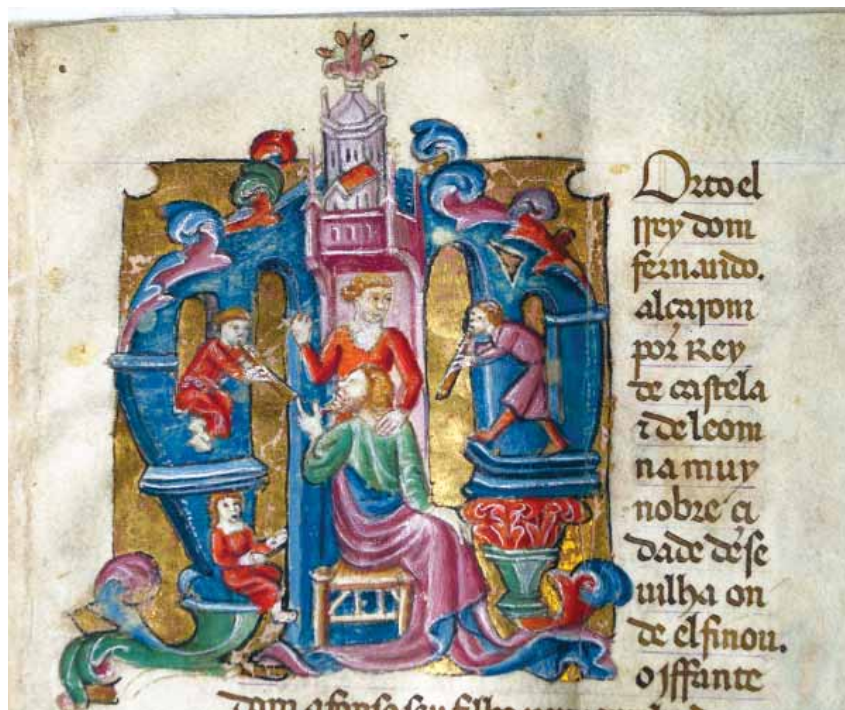 Orto el
rrey dom
fernando.
alçarom
por Rey
de castela
⁊ de leom
na muy
nobre ci
dade de se
uilha on
de el finou.
o Iffante
dom afonso seu filho